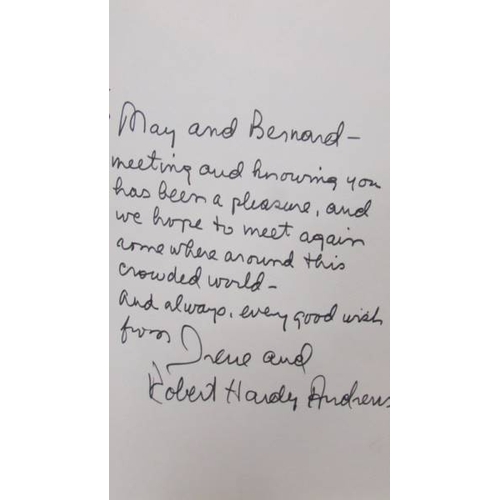 May and Bernard —
meeting and knowing you
has been a pleasure, and
we hope to meet again
somewhere around this
crowded world —
and always, every good wish
from Irene and
Robert Hardy Andrews